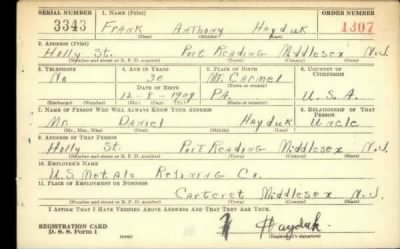 SERIAL NUMBER 1. NAME (Print) ORDER NUMBER
3343 Frank Anthony Hayduk 1307
(First) (Middle) (Last)
2. ADDRESS (Print)
Holly St. Port Reading Middlesex N.J.
(Number and street or R. F. D. number) (Town) (County) (State)
3. TELEPHONE 4. AGE IN YEARS 5. PLACE OF BIRTH 6. COUNTRY OF CITIZENSHIP
No 30 Mt. Carmel
DATE OF BIRTH (Town or county)
12-8-1909 PA. U.S.A.
(Exchange) (Number) (Mo.) (Day) (Yr.) (State or country)
7. NAME OF PERSON WHO WILL ALWAYS KNOW YOUR ADDRESS 8. RELATIONSHIP OF THAT PERSON
Mr. Daniel Hayduk Uncle
(Mr., Mrs., Miss) (First) (Middle) (Last)
9. ADDRESS OF THAT PERSON
Holly St. Port Reading Middlesex N.J.
(Number and street or R. F. D. number) (Town) (County) (State)
10. EMPLOYER'S NAME
U.S Metals Refining Co.
11. PLACE OF EMPLOYMENT OR BUSINESS
Carteret Middlesex N.J.
(Number and street or R. F. D. number) (Town) (County) (State)
I AFFIRM THAT I HAVE VERIFIED ABOVE ANSWERS AND THAT THEY ARE TRUE.
REGISTRATION CARD
D. S. S. Form 1 Hayduk
(Registrant's signature)